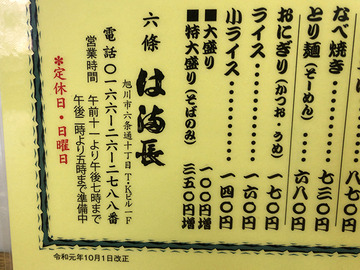 なべ焼き………八七〇円
とり麺(そーめん)…七三〇円
おにぎり(かつお・うめ)
ライス………一七〇円
小ライス………一四〇円
■大盛り 一〇〇円増
■特大盛り(そばのみ) 三五〇円増
六條 はま長
旭川市六条通十丁目T・Kビル一F
電話〇一六六-二六-二七八八番
営業時間 午前十一より午後七時まで
午後二時より五時まで準備中
*定休日・日曜日
令和元年10月1日改正